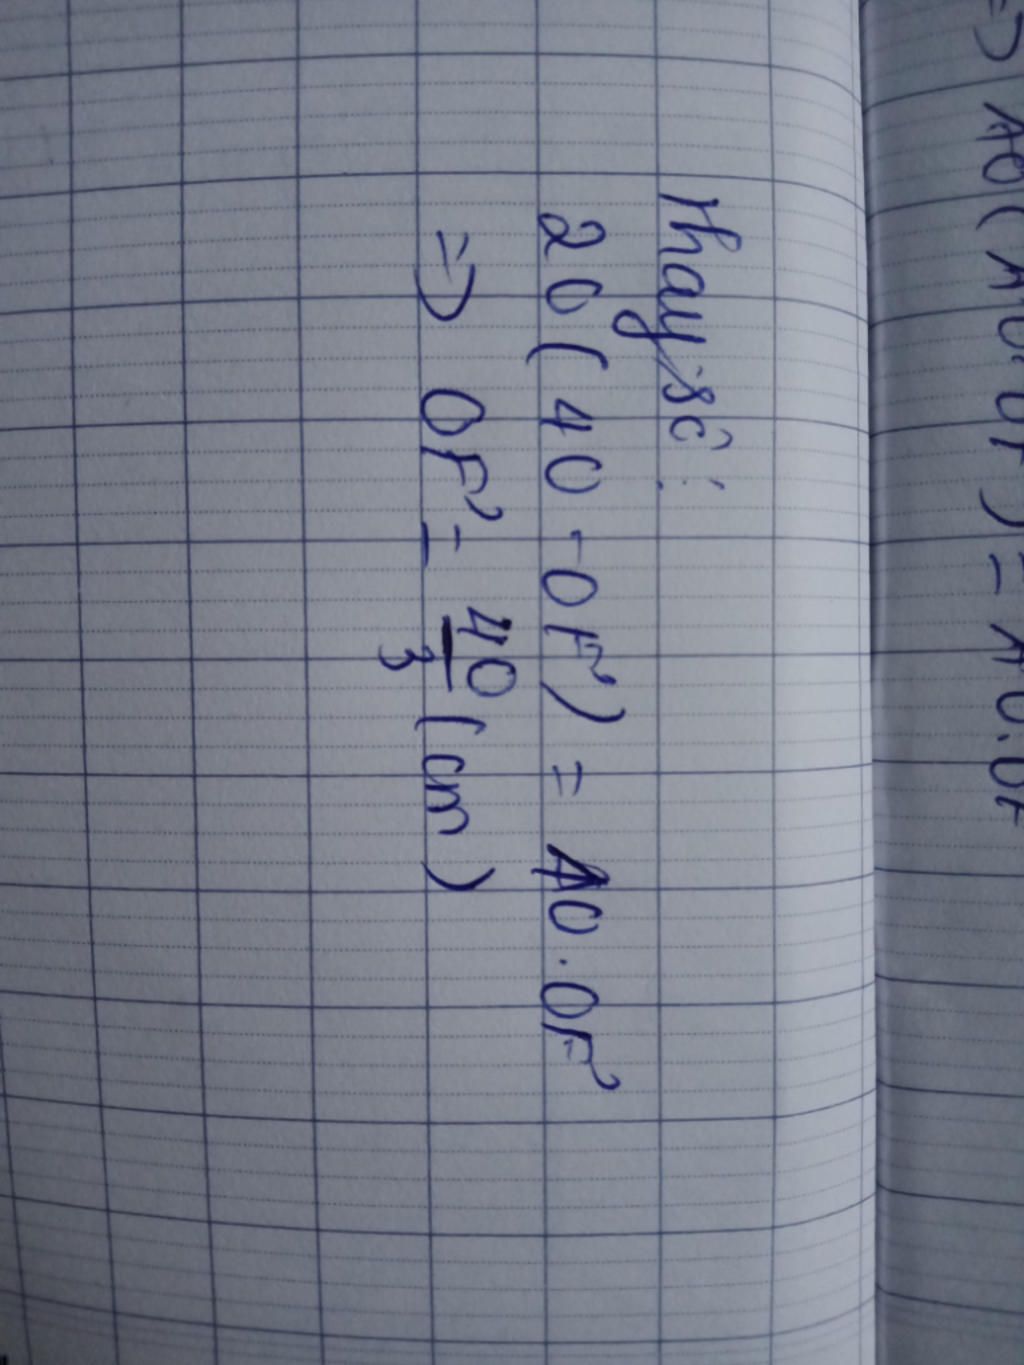 => AO(A'O. OF) = A'O.OF
Thay số:
20(40 - OF') = 40.OF'
=> OF' = 40/3 (cm)